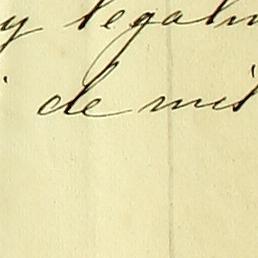 y legalm
de mis